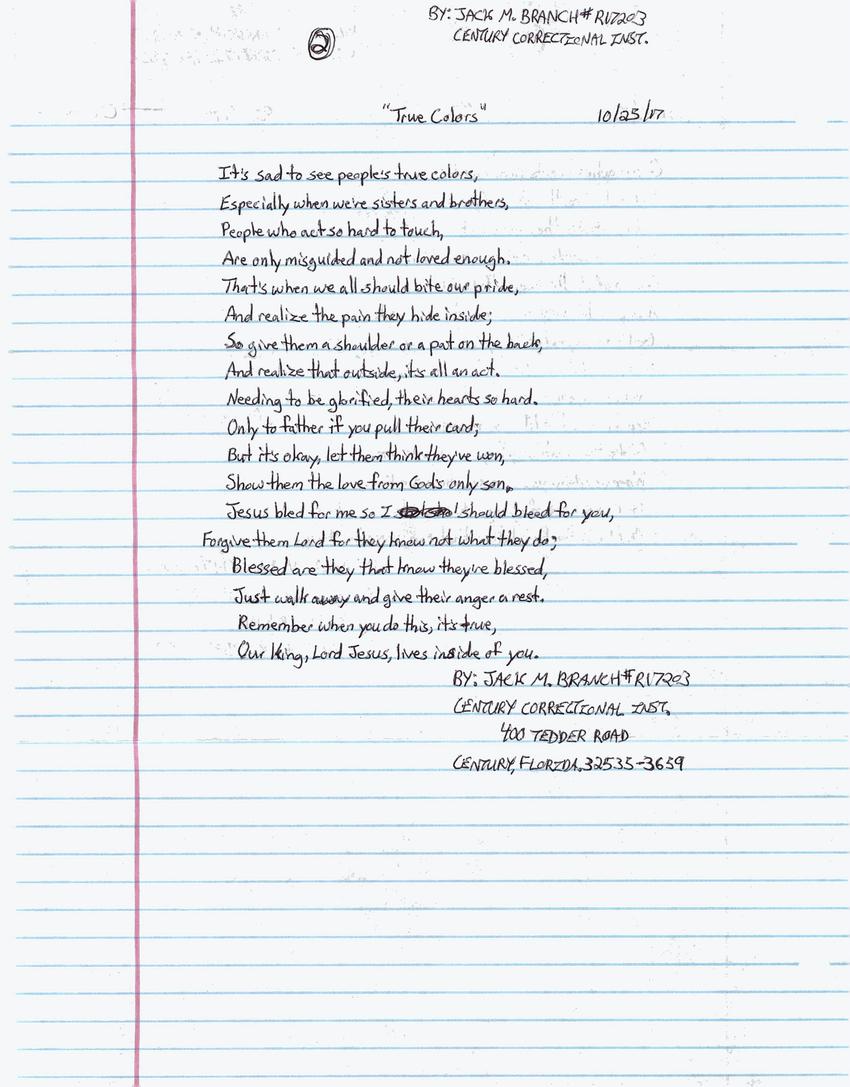 BY: JACK M. BRANCH # R17203
CENTURY CORRECTIONAL INST.
2
"True Colors" 10/25/17
It's sad to see people's true colors,
Especially when we're sisters and brothers,
People who act so hard to touch,
Are only misguided and not loved enough.
That's when we all should bite our pride,
And realize the pain they hide inside;
So give them a shoulder or a pat on the back,
And realize that outside, it's all an act.
Needing to be glorified, their hearts so hard.
Only to father if you pull their card;
But it's okay, let them think they've won,
Show them the love from God's only son.
Jesus bled for me so I should bleed for you,
Forgive them Lord for they know not what they do;
Blessed are they that know they're blessed,
Just walk away and give their anger a rest.
Remember when you do this, it's true,
Our King, Lord Jesus, lives inside of you.
BY: JACK M. BRANCH # R17203
CENTURY CORRECTIONAL INST.
400 TEDDER ROAD
CENTURY, FLORIDA, 32535-3659